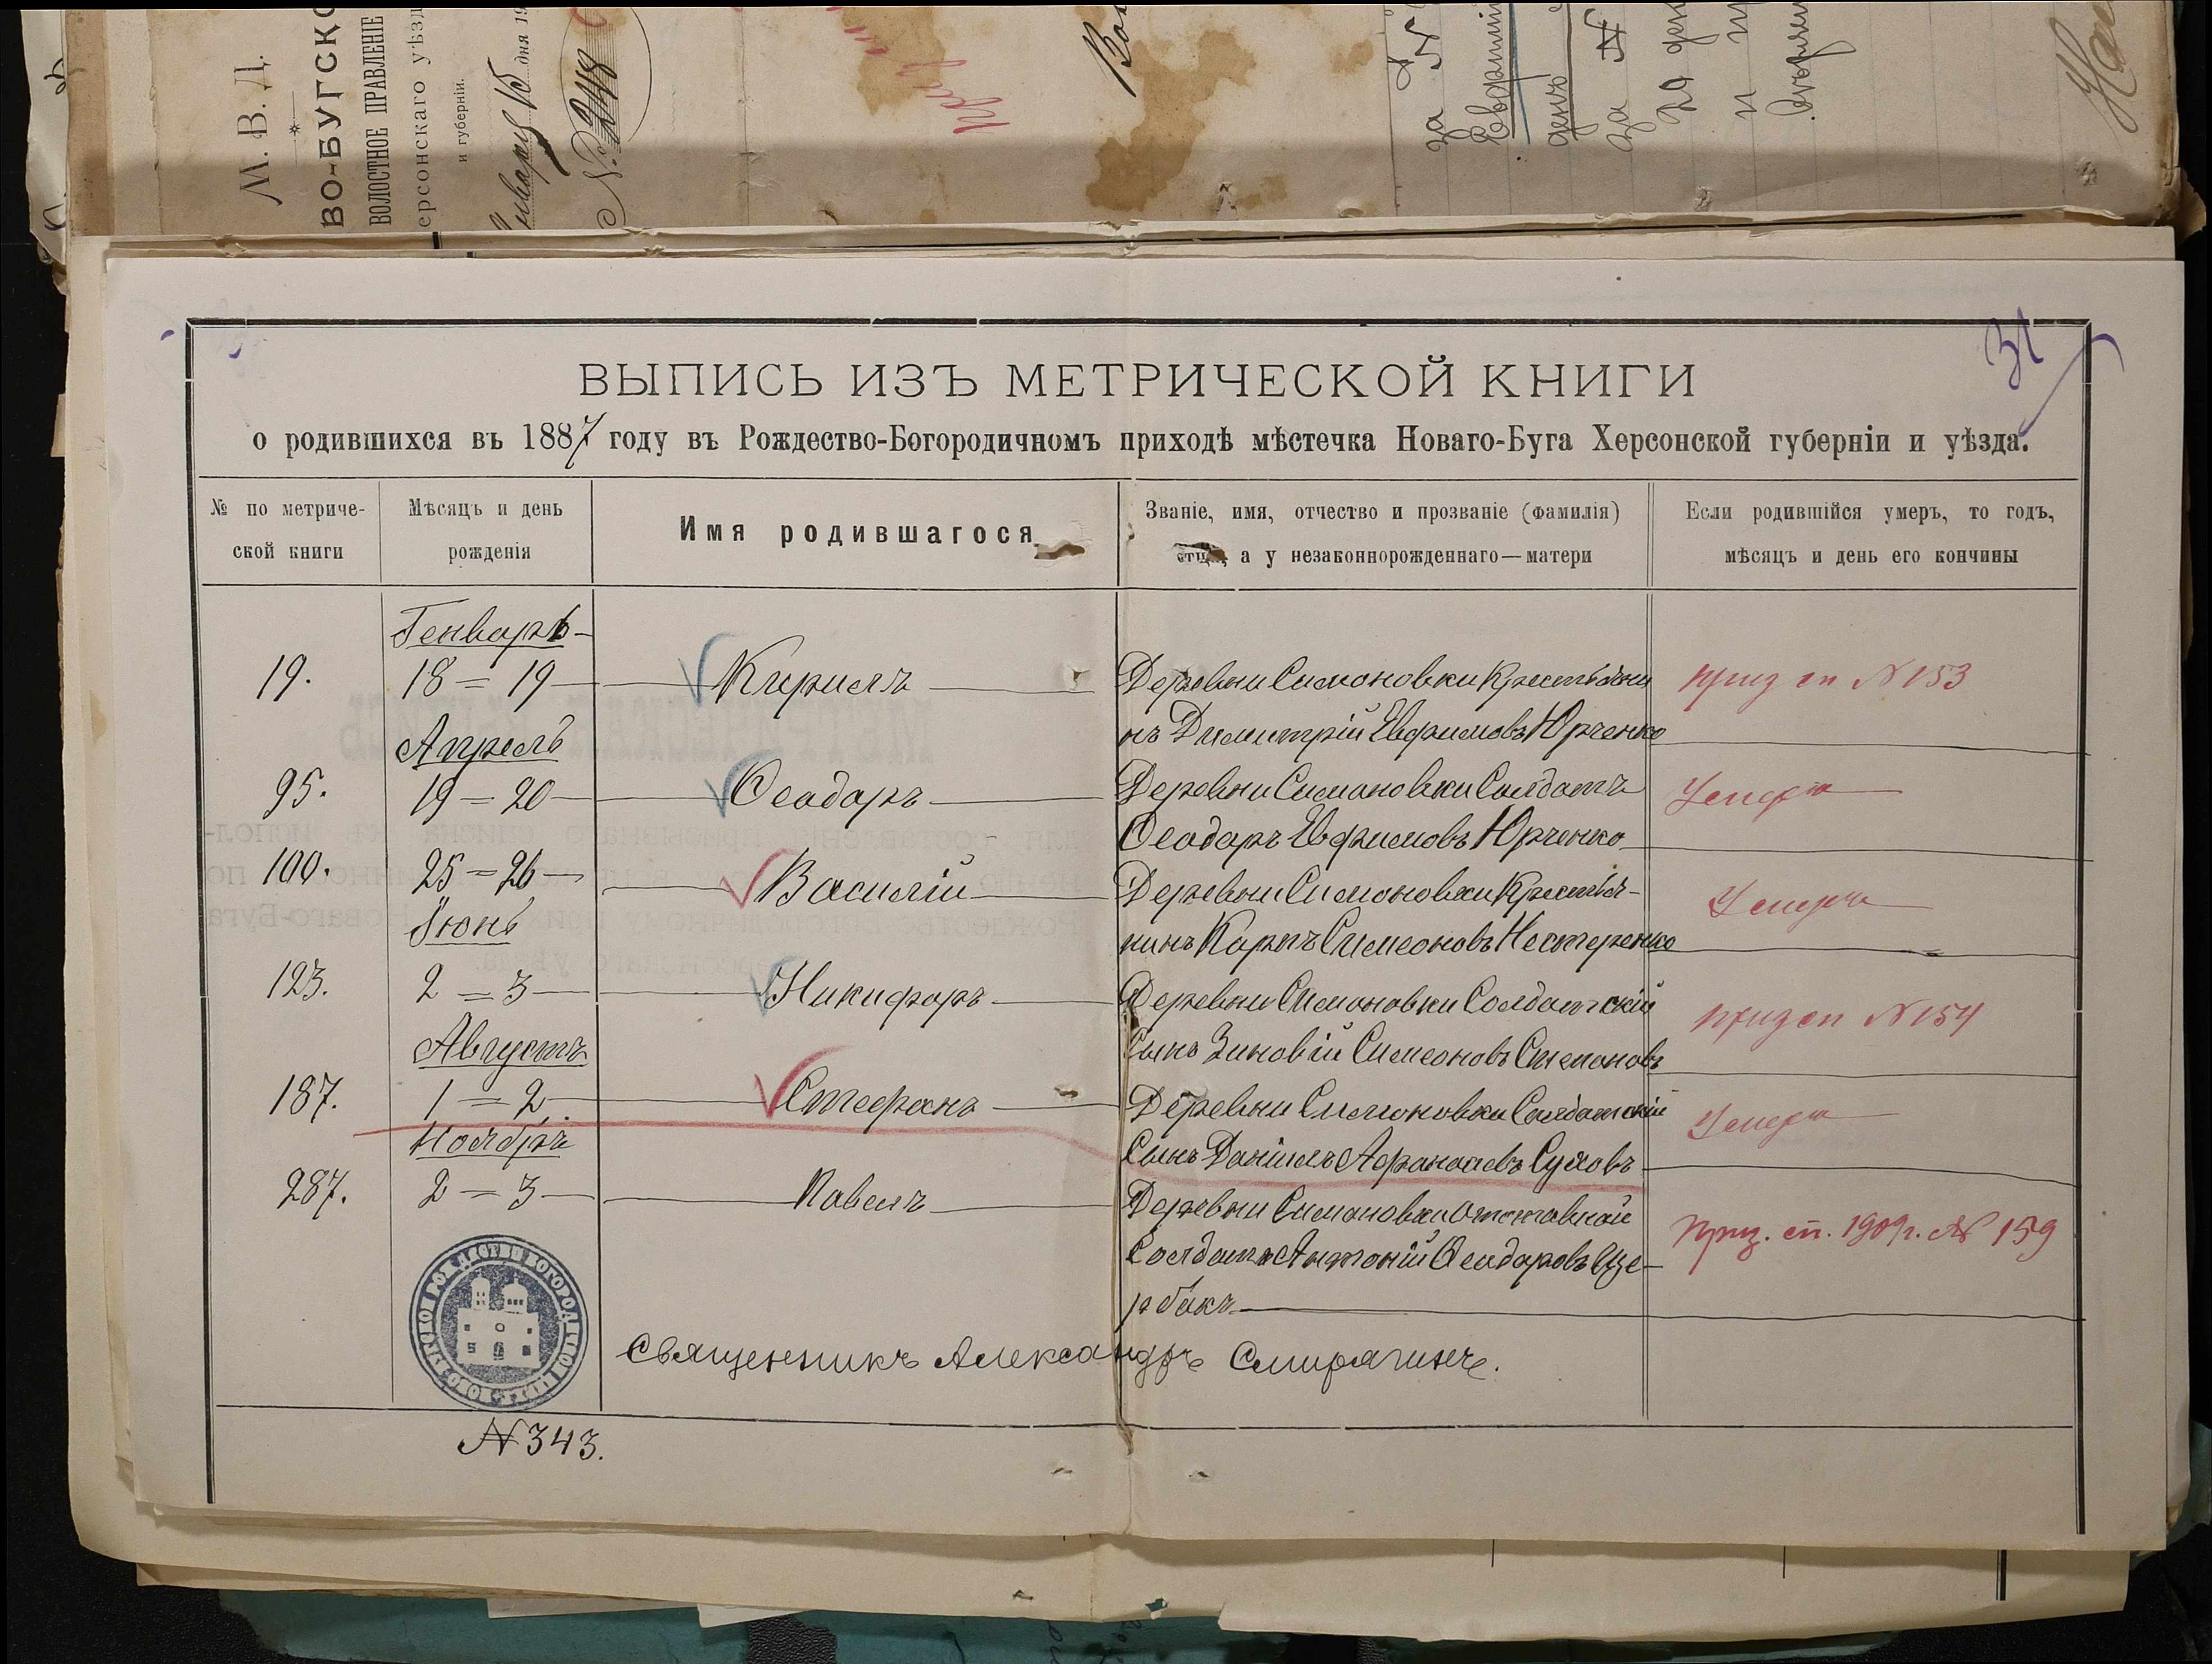 М. В. Д.
ВО-БУГСКО
ВОЛОСТНОЕ ПРАВЛЕНІЕ
ерсонскаго уѣзд
и губерніи.
дня 19
№ 248
за №
день
за №
31
ВЫПИСЬ ИЗЪ МЕТРИЧЕСКОЙ КНИГИ
о родившихся въ 1887 году въ Рождество-Богородичномъ приходѣ мѣстечка Новаго-Буга Херсонской губерніи и уѣзда.
№ по метриче-
ской книги
Мѣсяцъ и день
рожденія
Имя родившагося
Званіе, имя, отчество и прозваніе (фамилія)
отца, а у незаконнорожденнаго—матери
Если родившійся умеръ, то годъ,
мѣсяцъ и день его кончины
Генварь
19. 18 = 19 Кирилъ Деревни Симоновки Крестьяни
нъ Димитрій Евфимовъ Юрченко
приз сп №153
Апрель
95. 19 = 20 Ѳеодоръ Деревни Симоновки Солдатъ
Ѳеодоръ Евфимовъ Юрченко
Умеръ
100. 25 = 26 Василій Деревни Симоновки Крестья-
нинъ Карпъ Симеоновъ Нестеренко
Умеръ
Іюнь
123. 2 = 3 Никифоръ Деревни Симоновки Солдатскій
Сынъ Зиновій Симеоновъ Степановъ
приз сп №154
Августъ
187. 1 = 2 Стефанъ Деревни Симоновки Солдатскій
Сынъ Даніилъ Афанасіевъ Суховъ
Умеръ
Ноябрь
287. 2 = 3 Павелъ Деревни Симоновки Отставной
Солдатъ Антоній Ѳеодоровъ Ще-
рбакъ
Приз. сп. 1909г. № 159
Священникъ Александръ Смирягинъ.
№343.